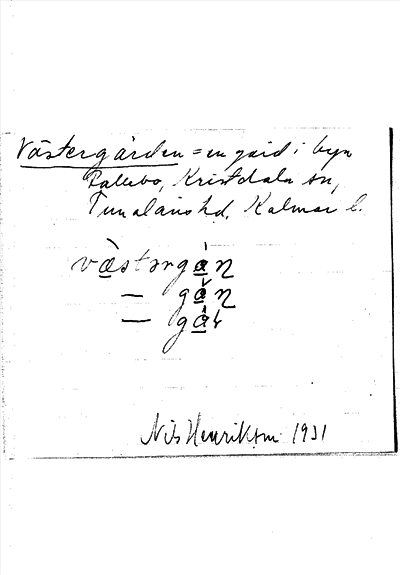 Västergården = en gård i byn
Pallebo, Kristdala sn,
Tunaläns hd, Kalmar l.
västərgån
— gån
— gåɽ
Nils Henrikson 1931